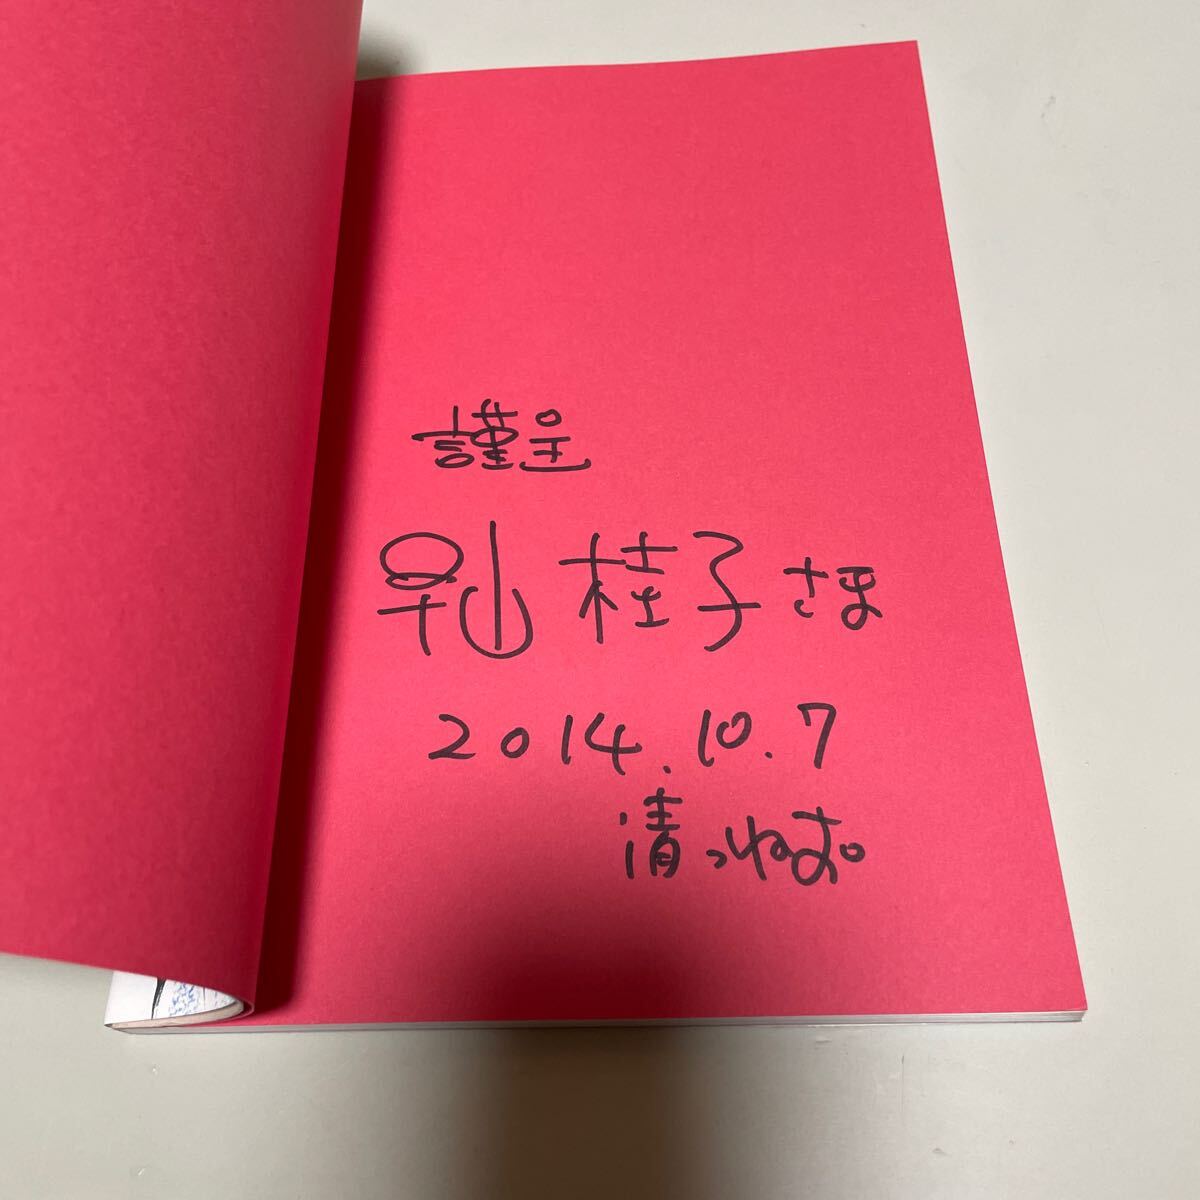 謹呈
早山 桂子 さま
2014.10.7
清つねお